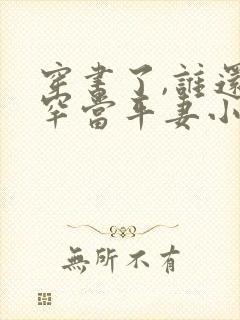 穿書了,誰還
罕當年妻小
無所不有